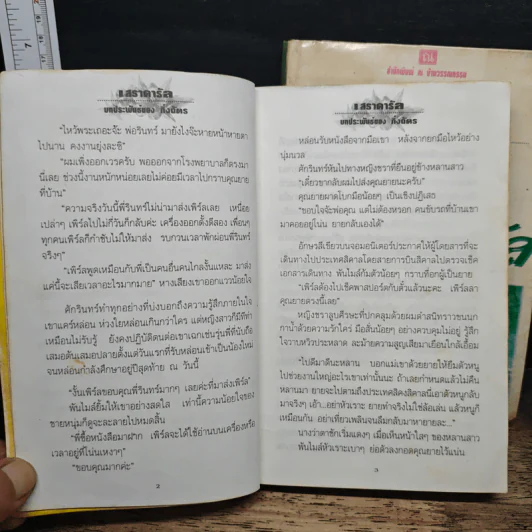 เสราดารัล
บทประพันธ์ของ กิ่งฉัตร
"ไหว้พระเถอะจ้ะ พ่อรินทร์ มายังไงจ๊ะหายหน้าหายตา
ไปนาน คงงานยุ่งละซิ"
"ผมเพิ่งออกเวรครับ พอออกจากโรงพยาบาลก็ตรงมา
นี่เลย ช่วงนี้งานหนักหน่อยเลยไม่ค่อยมีเวลาไปกราบคุณยาย
ที่บ้าน"
"ความจริงวันนี้พี่รินทร์ไม่น่ามาส่งเพิร์ลเลย เหนื่อย
เปล่าๆ เพิร์ลไปไม่กี่วันก็กลับค่ะ เครื่องออกตั้งตีสอง เพื่อนๆ
ทุกคนเพิร์ลก็กำชับไม่ให้มาส่ง รบกวนเวลาพักผ่อนพี่รินทร์
จริงๆ"
"เพิร์ลพูดเหมือนกับพี่เป็นคนอื่นคนไกลงั้นแหละ มาส่ง
แค่นี้จะเสียเวลาอะไรมากมาย" หางเสียงเขาออกแววน้อยใจ
ศักรินทร์ทำทุกอย่างที่บ่งบอกถึงความรู้สึกภายในใจ
เขาแคร์หล่อน ห่วงใยหล่อนเกินกว่าใคร แต่หญิงสาวก็มีทีท่า
เหมือนไม่รับรู้ ยังคงปฏิบัติตนต่อเขาเฉกเช่นรุ่นพี่ที่นับถือ
เสมอต้นเสมอปลายตั้งแต่วันแรกที่รับหล่อนเข้าเป็นน้องใหม่
จนหล่อนกำลังศึกษาอยู่ปีสุดท้าย ณ วันนี้
"งั้นเพิร์ลขอบคุณพี่รินทร์มากๆ เลยค่ะที่มาส่งเพิร์ล"
พันไมล์ยิ้มให้เขาอย่างสดใส เท่านี้ความน้อยใจของ
ชายหนุ่มก็ดูจะละลายไปหมดสิ้น
"พี่ซื้อหนังสือมาฝาก เพิร์ลจะได้ใช้อ่านบนเครื่องหรือ
เวลาอยู่ที่โน่นเหงาๆ"
"ขอบคุณมากค่ะ"
2
เสราดารัล
บทประพันธ์ของ กิ่งฉัตร
หล่อนรับหนังสือจากมือเขา หลังจากยกมือไหว้อย่าง
นุ่มนวล
ศักรินทร์หันไปทางหญิงชราที่ยืนอยู่ข้างหลานสาว
"เดี๋ยวขากลับผมไปส่งคุณยายนะครับ"
คุณยายผาดโบกมือน้อยๆ เป็นเชิงปฏิเสธ
"ขอบใจจ้ะพ่อคุณ แต่ไม่ต้องหรอก คนขับรถที่บ้านเขา
มาคอยอยู่โน่น ยายกลับเองได้"
อักษรสีเขียวบนจอมอนิเตอร์ประกาศให้ผู้โดยสารที่จะ
เดินทางไปประเทศคิสคาลโดยสายการบินคิสคาลไปตรวจเช็ค
เอกสารเดินทาง พันไมล์ก้มตัวน้อยๆ กราบที่อกผู้เป็นยาย
"เพิร์ลต้องไปเช็คพาสปอร์ตกับตั๋วแล้วนะคะ เพิร์ลลา
คุณยายตรงนี้เลย"
หญิงชราลูบศีรษะที่ปกคลุมด้วยผมดำสนิทราวขนนก
กาน้ำด้วยความรักใคร่ มือสั่นน้อยๆ อย่างควบคุมไม่อยู่ รู้สึก
ใจวาบหวิวประหลาด ละม้ายความสูญเสียมาเยือนใกล้เอื้อม
"ไปดีมาดีนะหลาน บอกแม่เขาด้วยยายให้ยืมตัวหนู
ไปช่วยงานใหญ่อะไรเขาเท่านั้นนะ ถ้าเลยกำหนดแล้วไม่คืน
หลานมา ยายจะไปตามถึงประเทศคิสคาลนี่เอาตัวหนูกลับ
มาจริงๆ เอ้า..อย่าหัวเราะ ยายทำจริงไม่ใช่ล้อเล่น แล้วหนูก็
เหมือนกัน อย่าเที่ยวเพลินจนลืมกลับมาหายายละ..."
นางว่าตาชักเริ่มแดงๆ เมื่อเห็นหน้าใสๆ ของหลานสาว
พันไมล์หัวเราะเบาๆ ย่อตัวลงกอดคุณยายไว้แน่น
3